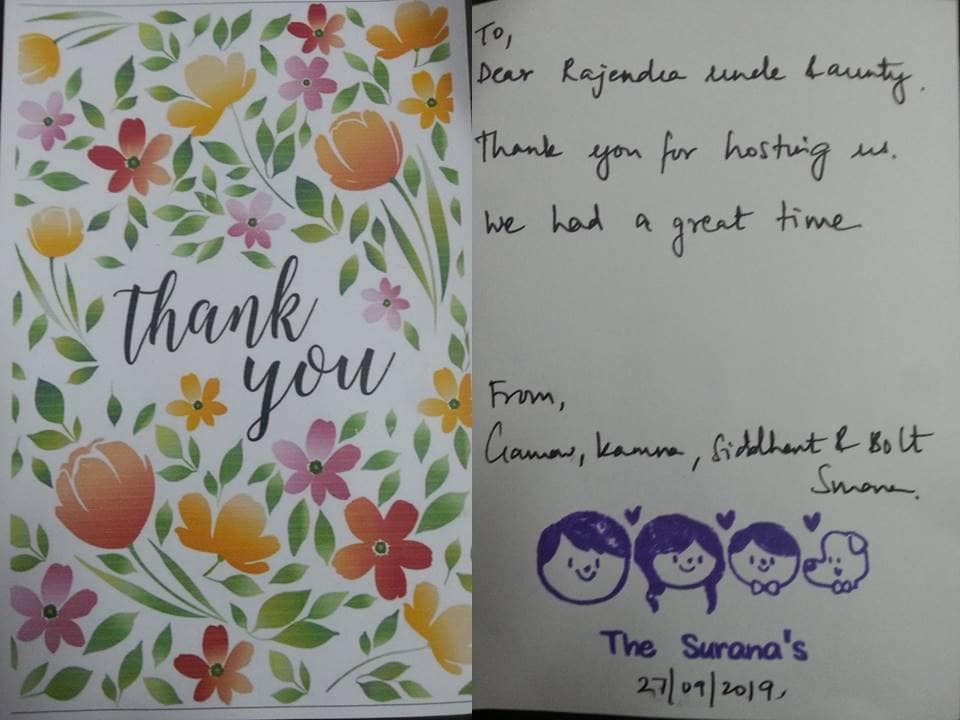 thank
you
To,
Dear Rajendra uncle & aunty.
Thank you for hosting us.
We had a great time
From,
Gaurav, Kamna, Siddhant & Bolt
Surana.
The Surana's
27/09/2019,